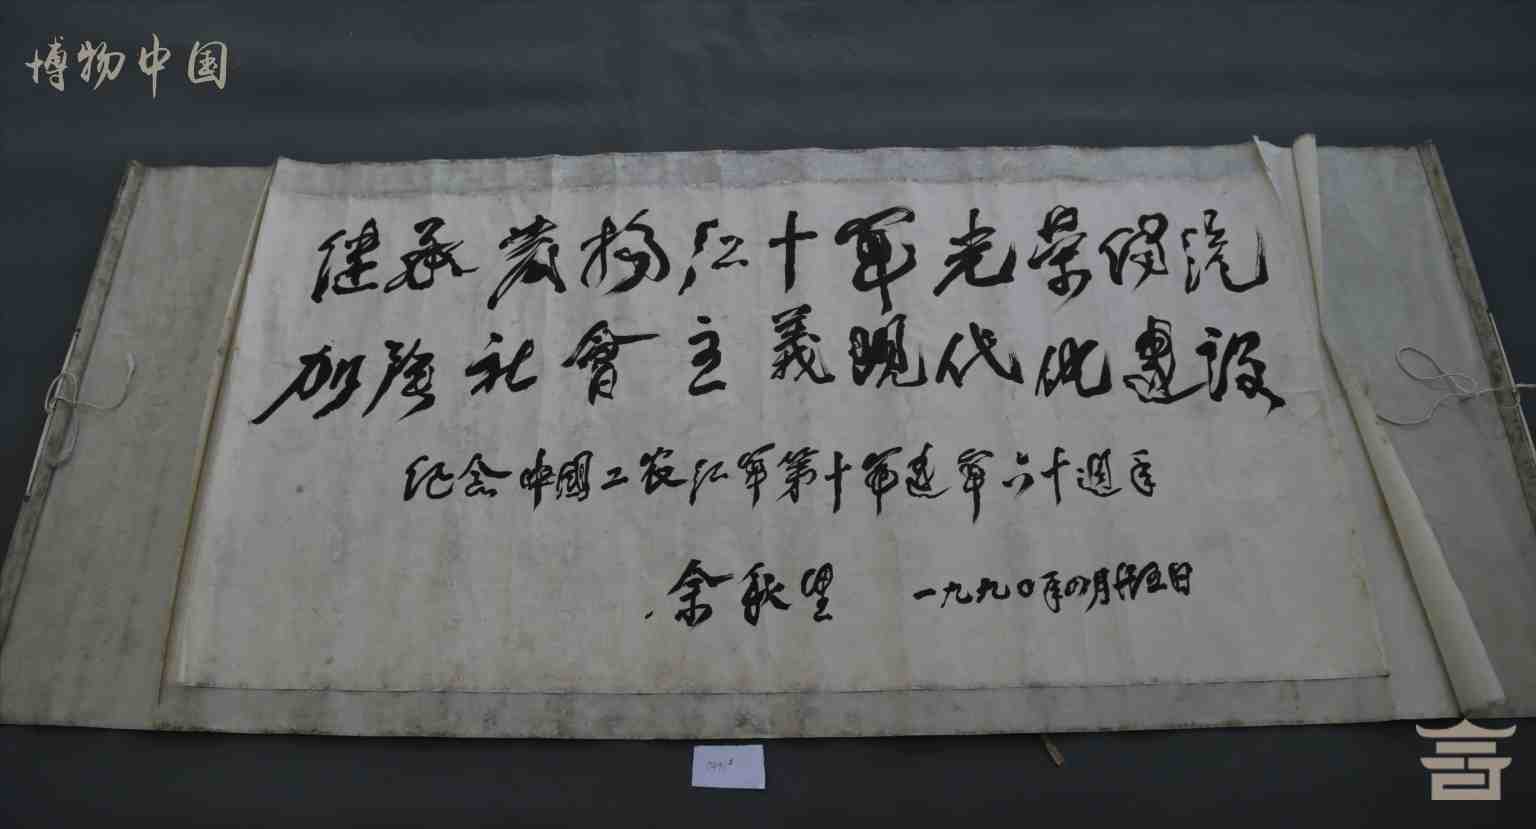 博物中国
继承发扬红十军光荣传统
加强社會主義現代化建設
纪念中國工农红军第十军建军六十週年
余秋里 一九九〇年四月廿五日